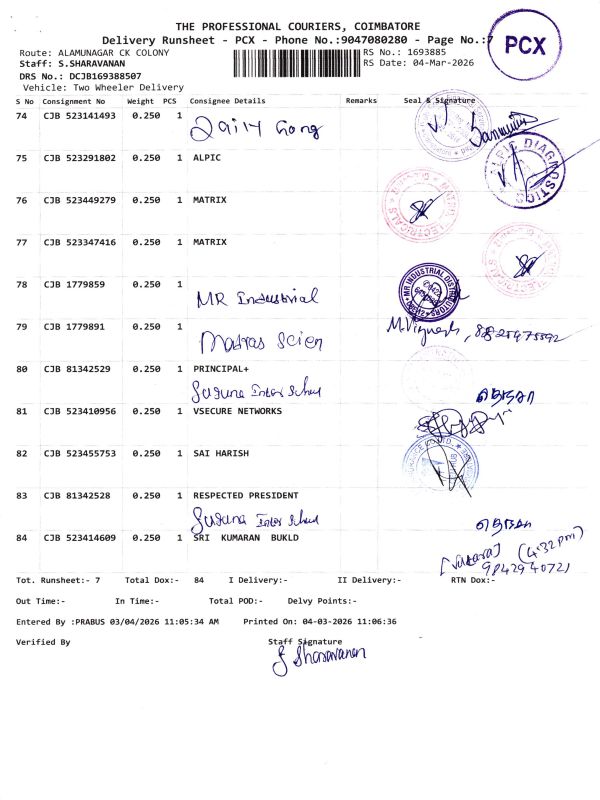 THE PROFESSIONAL COURIERS, COIMBATORE
Delivery Runsheet - PCX - Phone No.:9047080280 - Page No.:7
PCX
Route: ALAMUNAGAR CK COLONY
RS No.: 1693885
Staff: S.SHARAVANAN
RS Date: 04-Mar-2026
DRS No.: DCJB169388507
Vehicle: Two Wheeler Delivery
S No Consignment No Weight PCS Consignee Details Remarks Seal & Signature
74 CJB 523141493 0.250 1
75 CJB 523291802 0.250 1 ALPIC
ALPIC DIAGNOSTICS
76 CJB 523449279 0.250 1 MATRIX
77 CJB 523347416 0.250 1 MATRIX
78 CJB 1779859 0.250 1
MR Industrial
MR INDUSTRIAL DISTRIBUTORS
79 CJB 1779891 0.250 1
Madras Scien
M. Vignesh,
80 CJB 81342529 0.250 1 PRINCIPAL+
Suguna Inter School
81 CJB 523410956 0.250 1 VSECURE NETWORKS
82 CJB 523455753 0.250 1 SAI HARISH
83 CJB 81342528 0.250 1 RESPECTED PRESIDENT
Suguna Inter School
84 CJB 523414609 0.250 1 SRI KUMARAN BUKLD
(4:32pm)
9842940721
Tot. Runsheet:- 7 Total Dox:- 84 I Delivery:- II Delivery:- RTN Dox:-
Out Time:- In Time:- Total POD:- Delvy Points:-
Entered By :PRABUS 03/04/2026 11:05:34 AM Printed On: 04-03-2026 11:06:36
Verified By Staff Signature
S Sharavanan